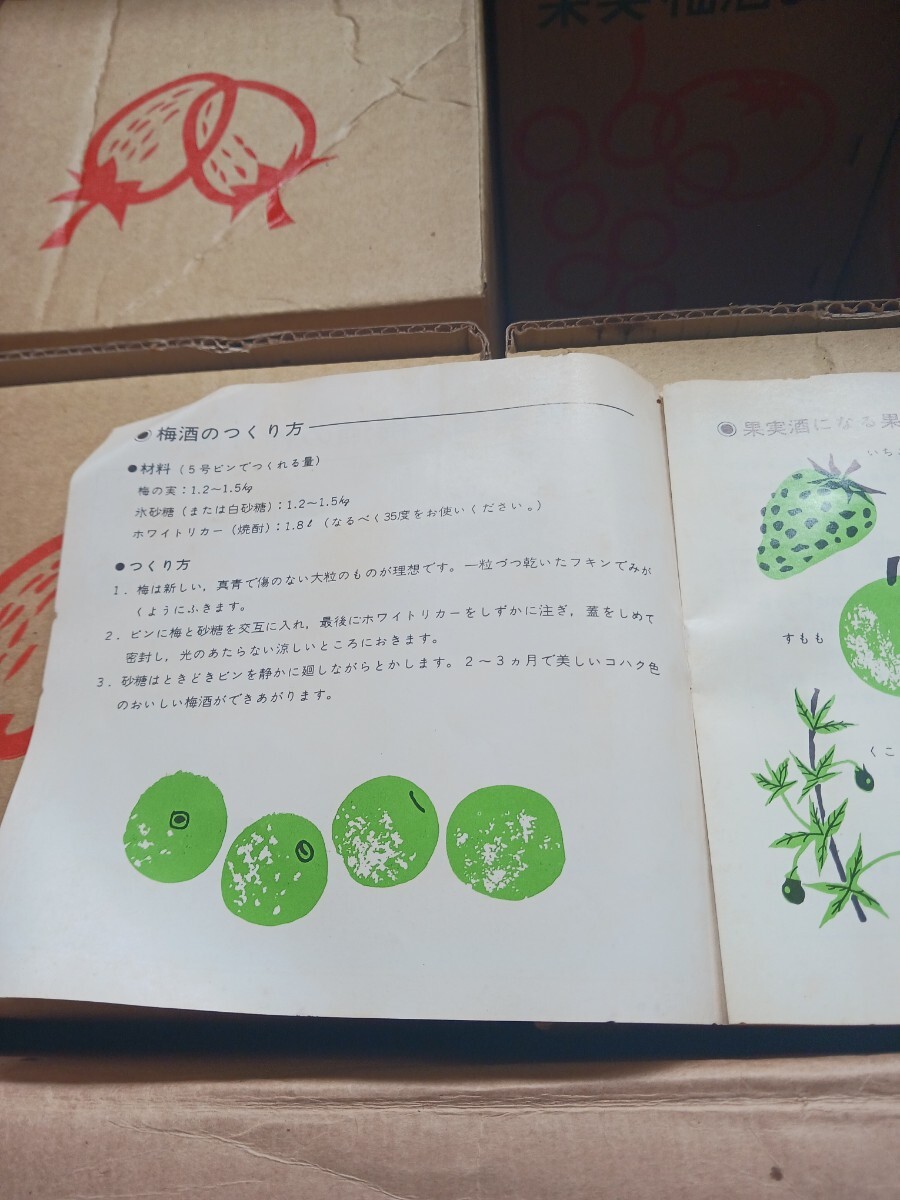 果実 梅酒
◉梅酒のつくり方
●材料（5号ビンでつくれる量）
梅の実：1.2〜1.5kg
氷砂糖（または白砂糖）：1.2〜1.5kg
ホワイトリカー（焼酎）：1.8ℓ（なるべく35度をお使いください。）
●つくり方
1．梅は新しい，真青で傷のない大粒のものが理想です。一粒づつ乾いたフキンでみが
くようにふきます。
2．ビンに梅と砂糖を交互に入れ，最後にホワイトリカーをしずかに注ぎ，蓋をしめて
密封し，光のあたらない涼しいところにおきます。
3．砂糖はときどきビンを静かに廻しながらとかします。2〜3ヵ月で美しいコハク色
のおいしい梅酒ができあがります。
◉果実酒になる果
いち
すもも
くこ